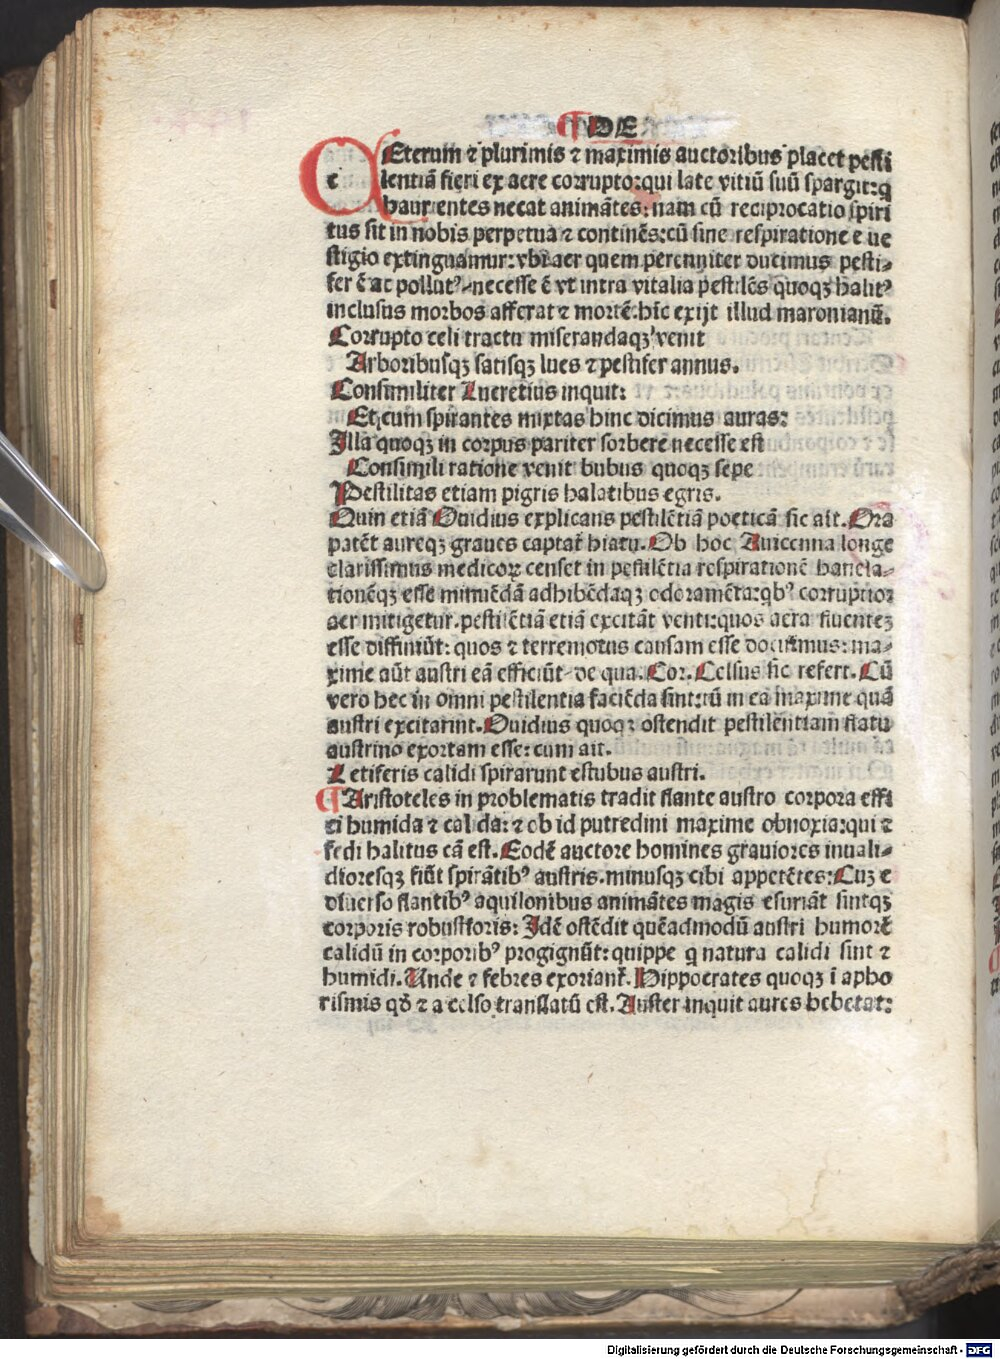 ¶ DE
CEterum ⁊ plurimis ⁊ maximis auctoribus placet pesti
lentiā fieri ex aere corrupto: qui late vitiū suū spargit: q
haurientes necat animātes: nam cū reciprocatio spiri
tus sit in nobis perpetua ⁊ continēs: cū sine respiratione e ue
stigio extinguamur: vbi aer quem perenniter ducimus pesti⸗
fer ē ac pollutꝰ necesse ē vt intra vitalia pestilēs quoqꝫ halitꝰ
inclusus morbos afferat ⁊ mortē. hīc exijt illud maronianū.
Corrupto celi tractu miserandaqꝫ venit
Arboribusqꝫ satisqꝫ lues ⁊ pestifer annus.
Consimiliter Lucretius inquit:
Et cum spirantes mixtas hinc dicimus auras:
Illa quoqꝫ in corpus pariter sorbere necesse est
Consimili ratione venit bubus quoqꝫ sepe
Pestilitas etiam pigris balatibus egris.
Quin etiā Ouidius explicans pestilētiā poeticā sic ait. Ora
patēt aureqꝫ graues captāt hiatu. Ob hoc Auicenna longe
clarissimus medicoꝝ censet in pestilētia respirationē hanela⸗
tionēqꝫ esse minuēdā adhibēdaqꝫ odoramēta: qbꝰ corruptior
aer mitigetur. pestilētiā etiā excitāt venti: quos aera fluentē
esse diffiniūt: quos ⁊ terremotus causam esse docuimus: ma⸗
xime aūt austri eā efficiūt de qua. Cor. Celsus sic refert. Cū
vero hec in omni pestilentia faciēda sint: tū in ea maxime quā
austri excitarint. Ouidius quoqꝫ ostendit pestilentiam flatu
austrino exortam esse: cum ait.
Letiferis calidi spirarunt estubus austri.
¶ Aristoteles in problematis tradit flante austro corpora effi
ci humida ⁊ calida: ⁊ ob id putredini maxime obnoxia: qui ⁊
fedi halitus cā est. Eodē auctore homines grauiores inuali⸗
dioresqꝫ fiūt spirātibꝰ austris. minusqꝫ cibi appetētes: Cuꝫ e
diuerso flantibꝰ aquilonibus animātes magis esuriāt sintqꝫ
corporis robustioris: Idē ostēdit quēadmodū austri humorē
calidū in corporibꝰ progignūt: quippe q natura calidi sint ⁊
humidi. Unde ⁊ febres exoriant᷑. Hippocrates quoqꝫ ī apho
rismis qd̄ ⁊ a celso translatū est. Auster inquit aures hebetat:
Digitalisierung gefördert durch die Deutsche Forschungsgemeinschaft - DFG